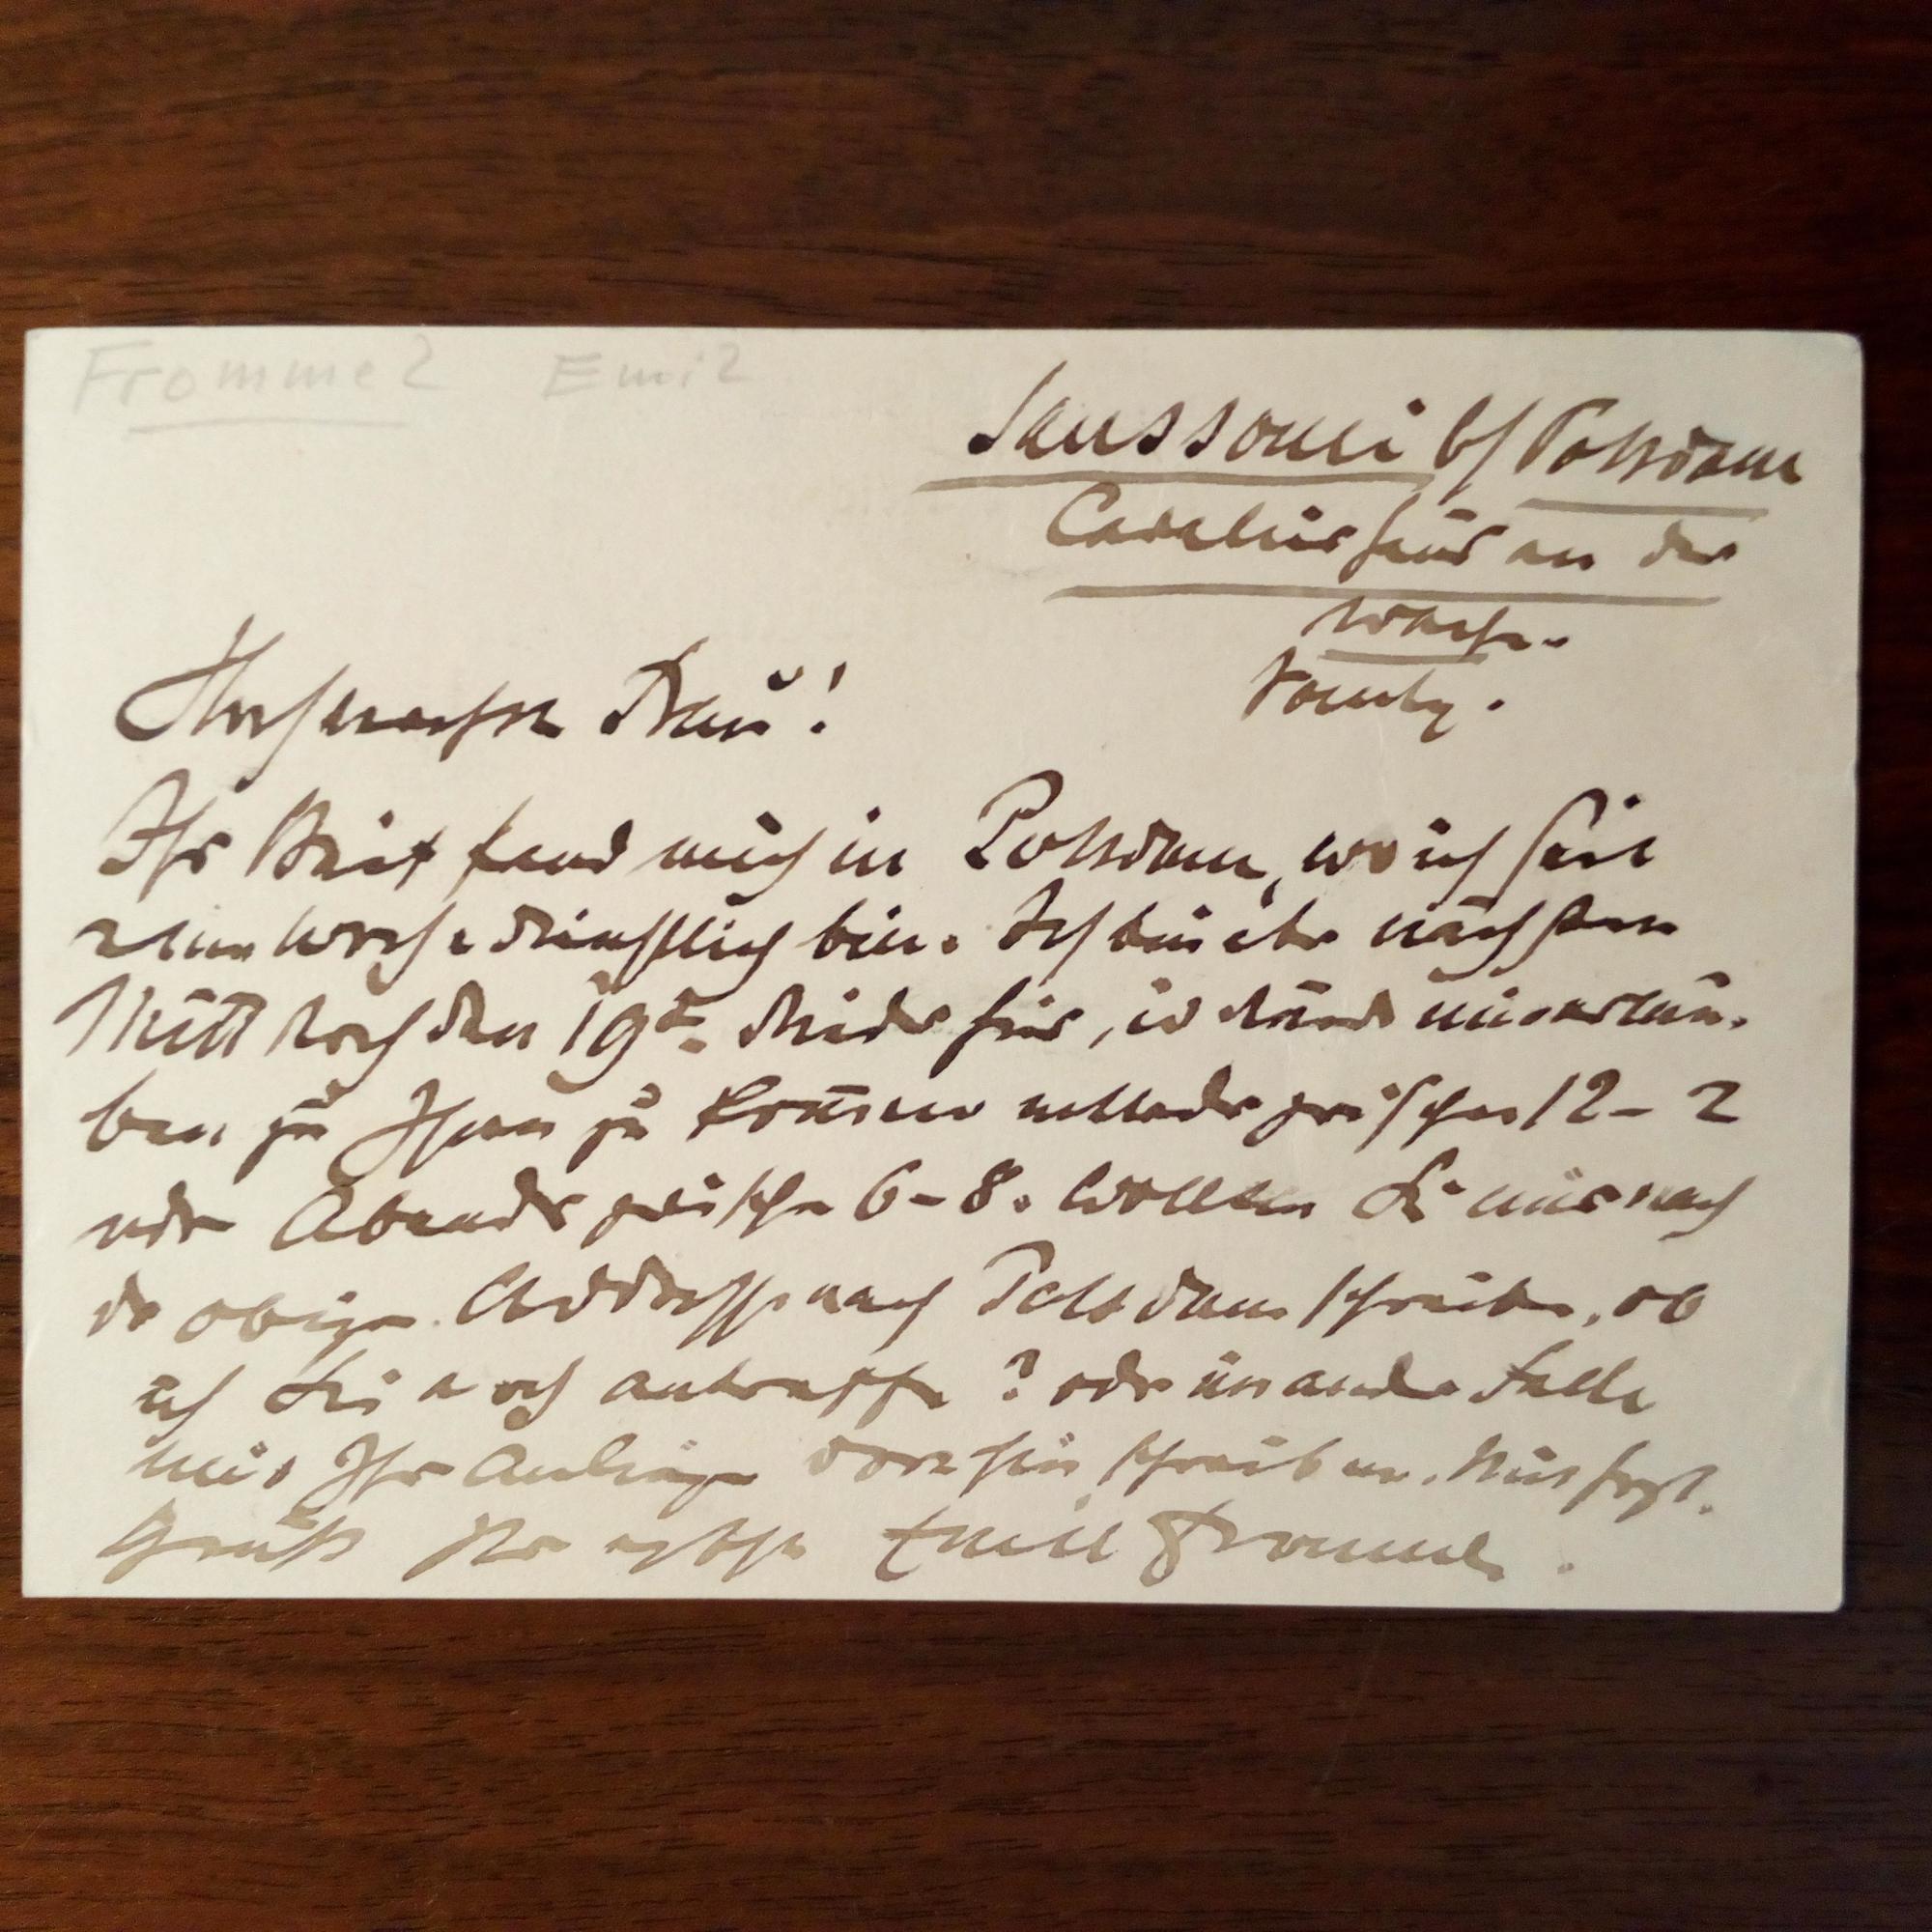 Frommel Emil
Sanssouci b/ Potsdam
Cavalierhaus an der
Wache.
Sonntag.
Hochverehrte Frau!
Ihr Brief fand mich in Potsdam, wo ich seit
einer Woche dienstlich bin. Ich bin aber nächsten
Mittwoch den 19t. wieder hier, und würde mir erlau-
ben zu Ihnen zu kommen entweder zwischen 12-2
oder Abends zwischen 6-8. Wollten Sie mir nach
der obigen Addresse nach Potsdam schreiben, ob
ich Sie noch antreffe? oder im andern Falle
mir Ihr Anliegen dorthin schreiben. Mit herzl.
Gruß Ihr Emil Frommel.